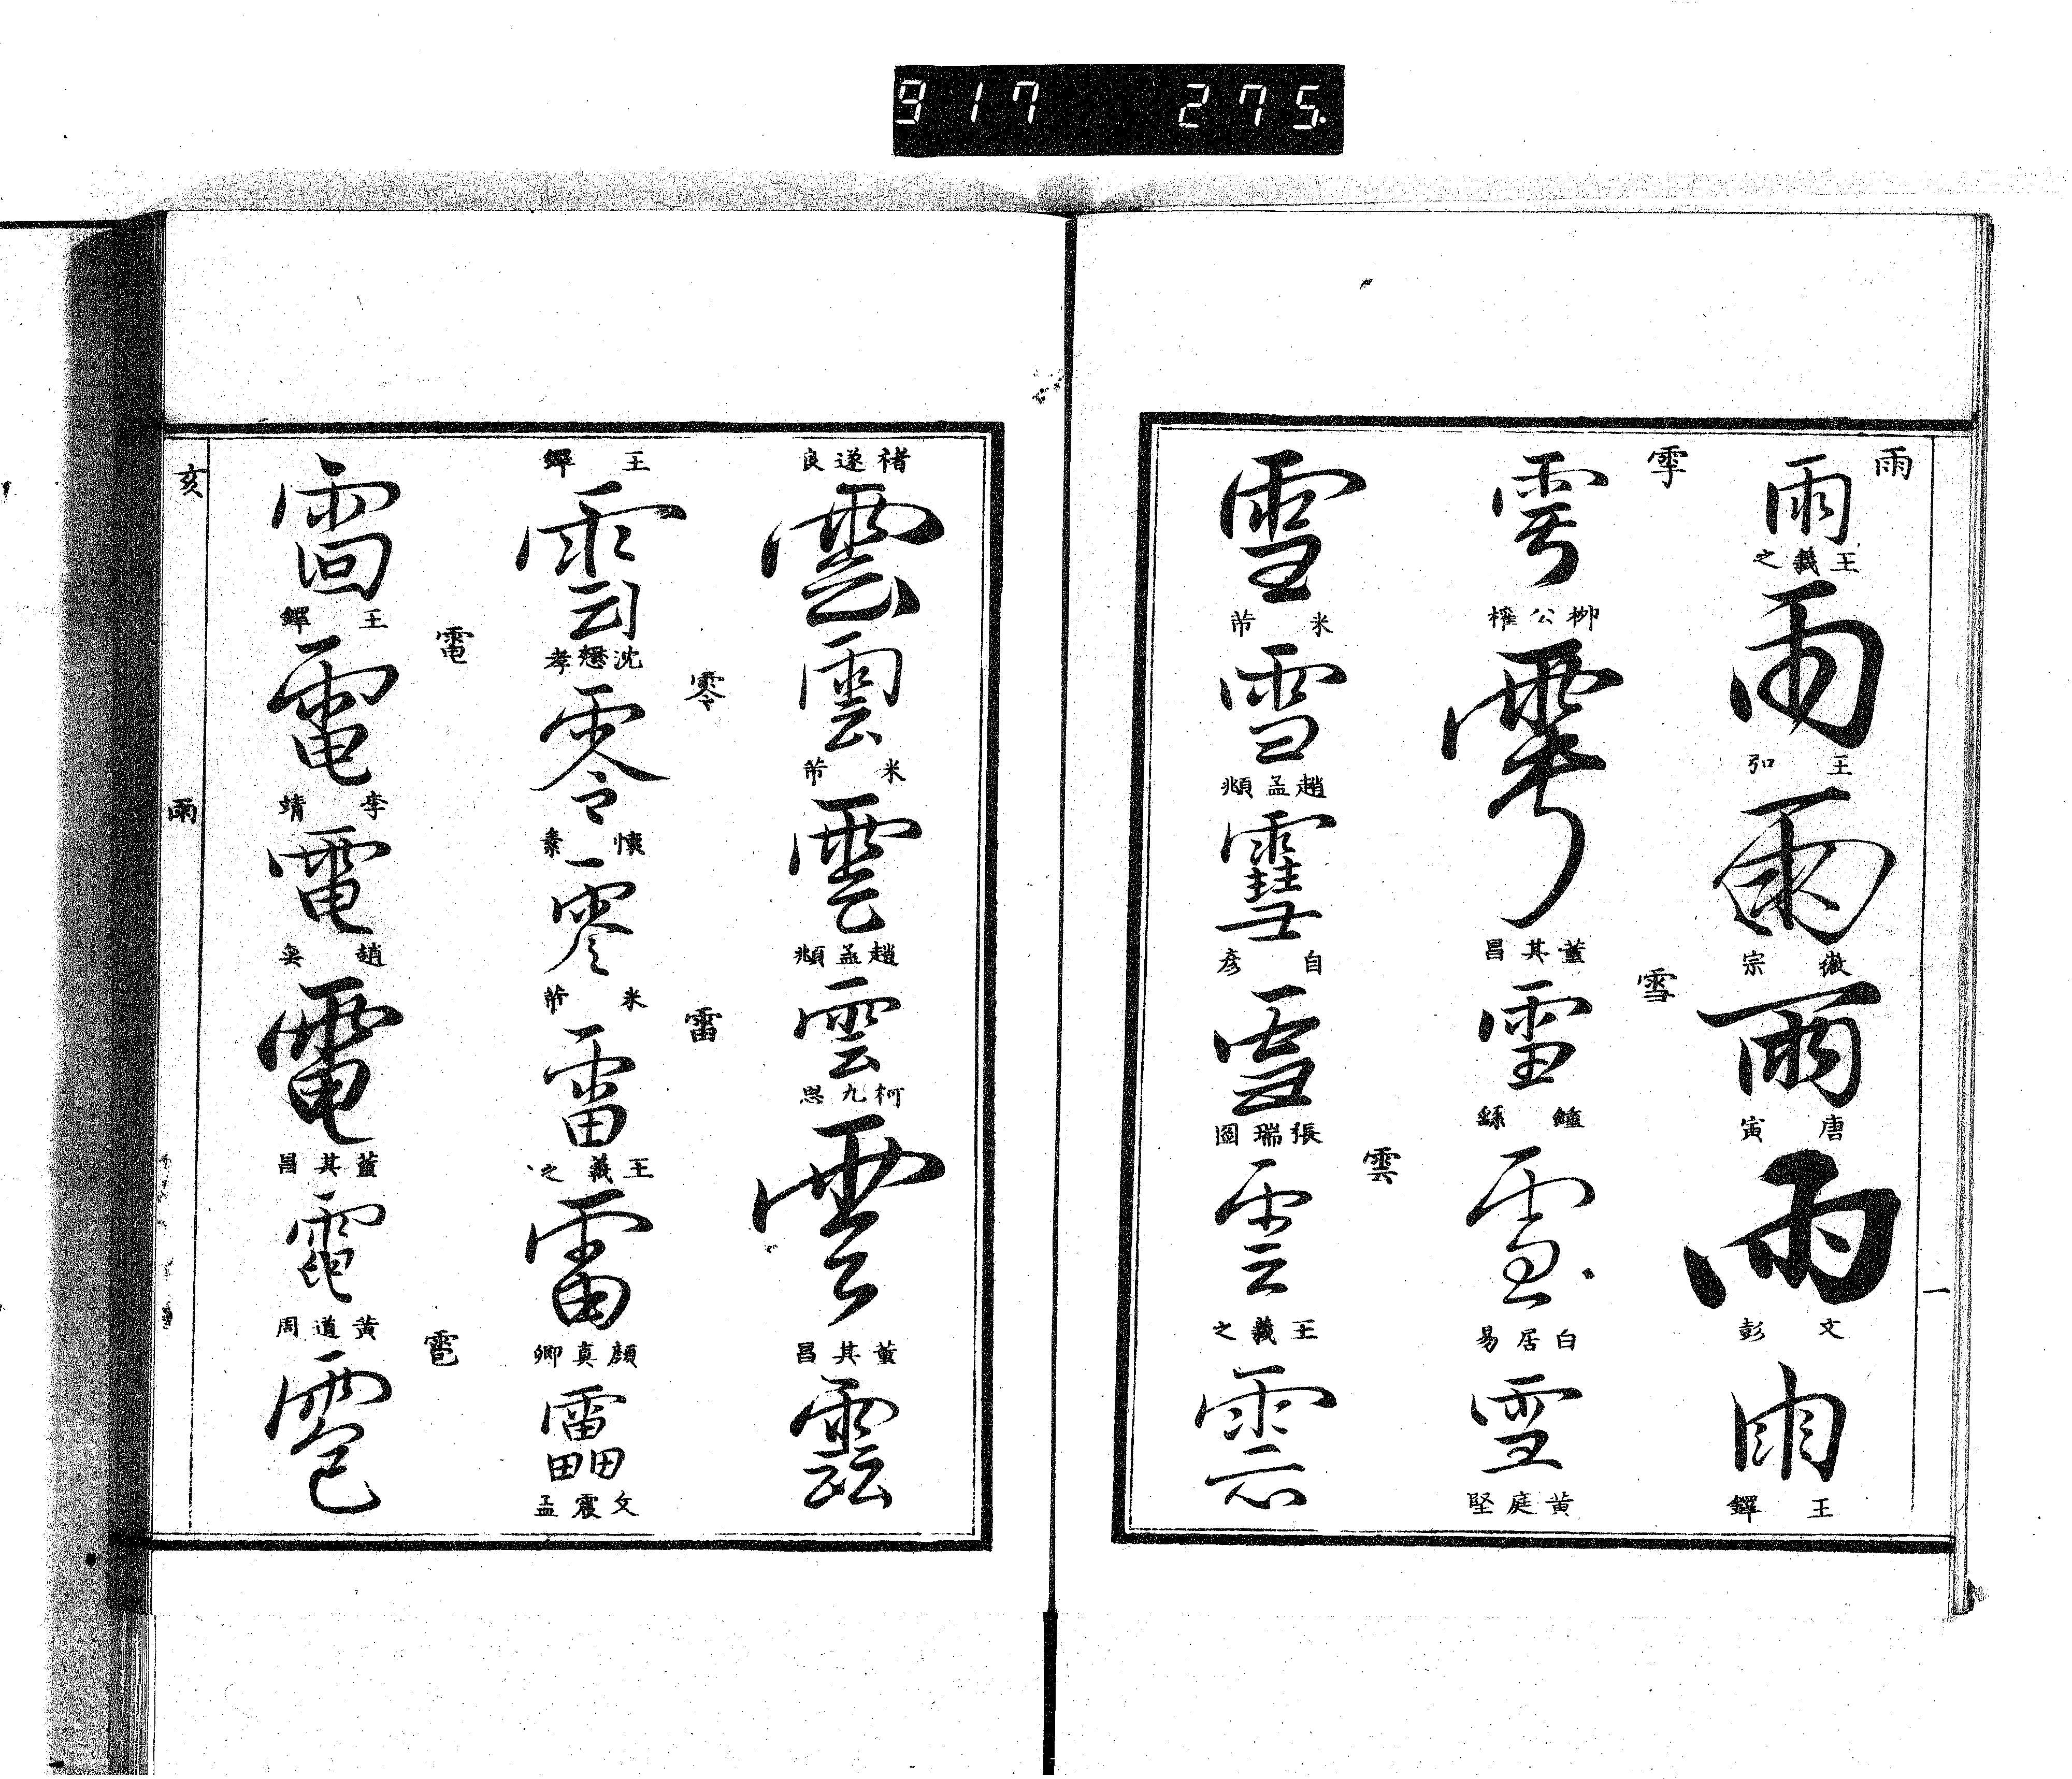 917 275.
雨
雨
王羲之
雨
王弘
雨
徽宗
雨
唐寅
雨
文彭
雨
王鐸
雩
雩
柳公權
雩
董其昌
雪
雪
鍾繇
雪
白居易
雪
黃庭堅
雪
米芾
雪
趙孟頫
自彥
雪
張瑞圖
雲
雲
王羲之
雲
一
褚遂良
雲
雲
米芾
雲
趙孟頫
雲
柯九思
雲
董其昌
雲
王鐸
沈懋孝
零
零
懷素
零
米芾
雷
雷
王羲之
雷
顏真卿
文震孟
雷
王鐸
電
電
李靖
電
趙奐
電
董其昌
電
黃道周
雹
雹
亥
雨